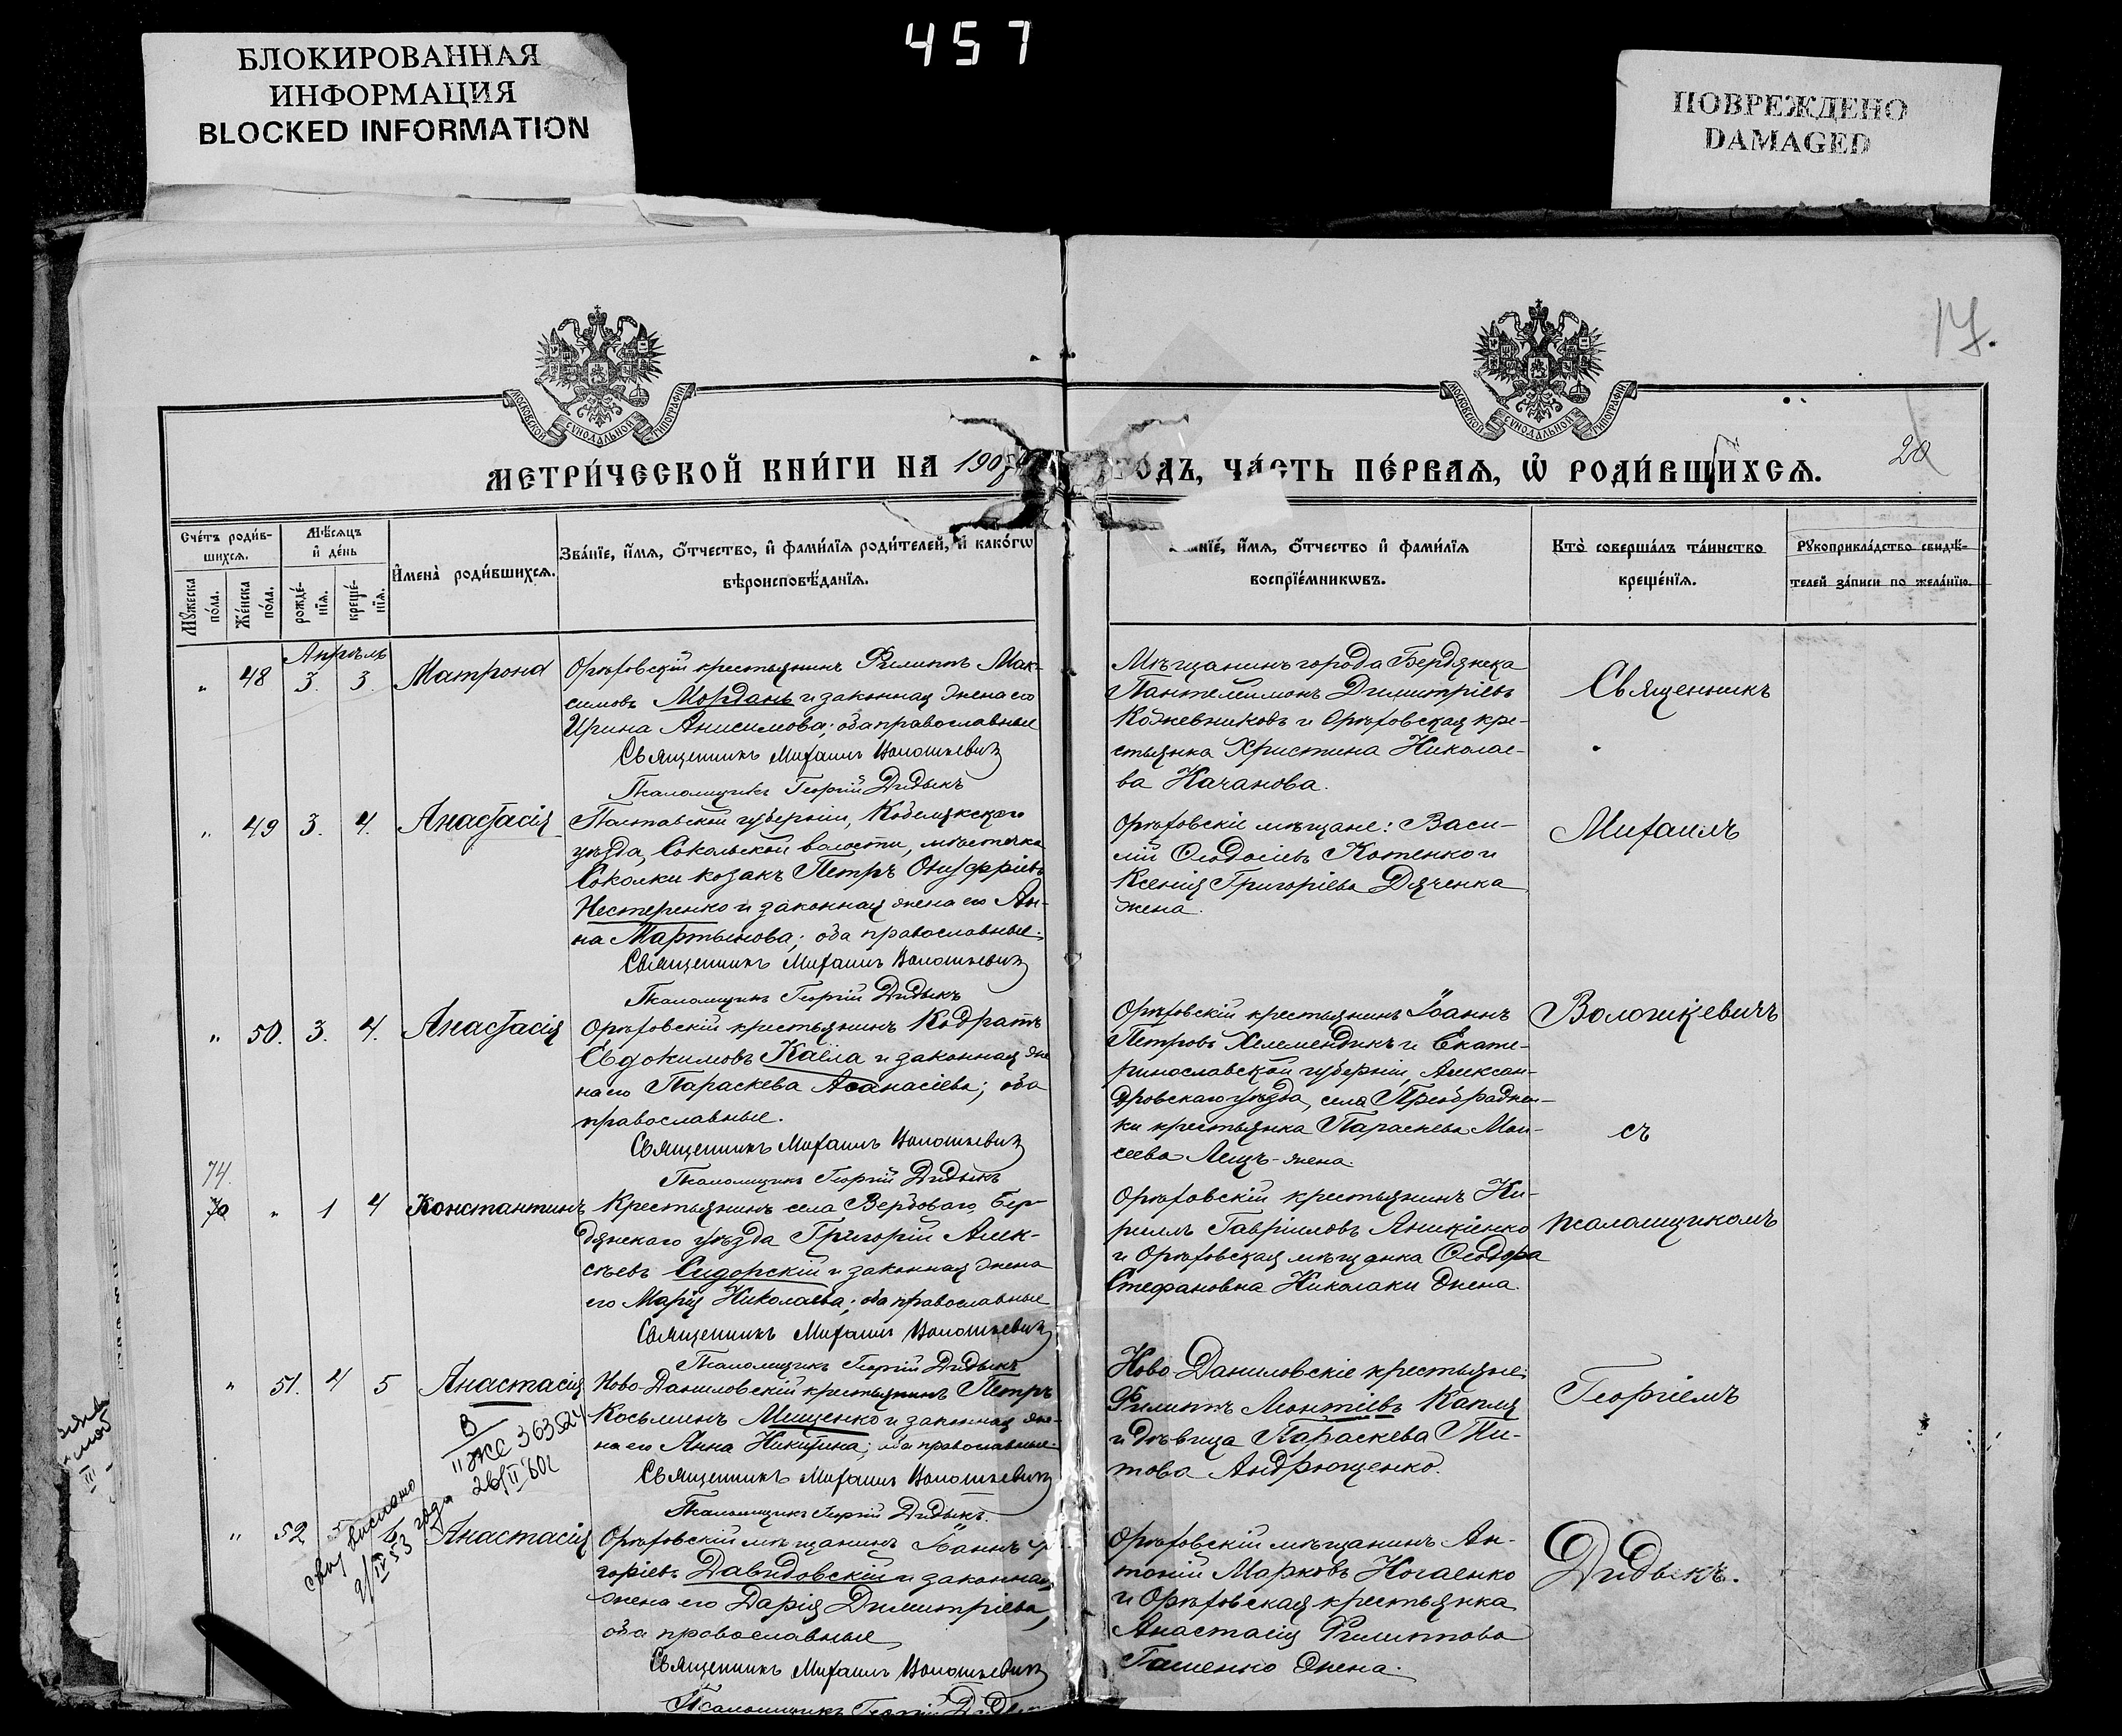 457
БЛОКИРОВАННАЯ
ИНФОРМАЦИЯ
BLOCKED INFORMATION
ПОВРЕЖДЕНО
DAMAGED
17.
МОСКОВСКОЙ СѴНОДАЛЬНОЙ ТИПОГРАФІИ
МОСКОВСКОЙ СѴНОДАЛЬНОЙ ТИПОГРАФІИ
20
МЕТРИ́ЧЕСКОЙ КНИ́ГИ НА 190
ГО́ДЪ, ЧА́СТЬ ПЕ́РВАЯ, Ѡ РОДИ́ВШИХСЯ.
Сче́тъ роди́в-
шихся.
Мꙋ́жеска
по́ла.
Же́нска
по́ла.
Мѣ́сяцъ
и де́нь
рожде́-
нїя.
креще́-
нїя.
И҆мена̀ роди́вшихся.
Зва́нїе, и҆́мя, ѻ҆́тчество, и҆ фами́лїя роди́телей, и҆ како́гѡ
вѣроисповѣ́данїя.
и҆́мя, ѻ҆́тчество и҆ фами́лїя
воспрїе́мникѡвъ.
Кто̀ соверша́лъ та́инство
креще́нїя.
Рꙋкоприкла́дство свидѣ́-
телей за́писи по жела́нїю.
Апрѣль
" 48 3. 3. Матрона
Орѣховскій крестьянинъ Филиппъ Мак-
симовъ Мордань и законная жена его
Ирина Анисимова; оба православные
Священникъ Михаилъ Волошкевичъ
Псаломщикъ Георгій Дидыкъ
Мѣщанинъ города Бердянска
Пантелеимонъ Димитріевъ
Кожевниковъ и Орѣховская кре-
стьянка Христина Николае-
ва Качанова.
Священникъ
" 49 3. 4. Анастасія
Полтавской губерніи, Кобелякскаго
уѣзда, Сокольской волости, мѣстечка
Соколки козакъ Петръ Онуфріевъ
Нестеренко и законная жена его Ан-
на Мартынова; оба православные.
Священникъ Михаилъ Волошкевичъ
Псаломщикъ Георгій Дидыкъ
Орѣховскіе мѣщане: Васи-
лій Ѳеодосіевъ Котенко и
Ксенія Григоріева Дяченка
жена.
Михаилъ
" 50. 3. 4. Анастасія
Орѣховскій крестьянинъ Кодратъ
Евдокимовъ и законная же
на его Параскева Аѳанасіева; оба
православные.
Священникъ Михаилъ Волошкевичъ
Псаломщикъ Георгій Дидыкъ
Орѣховскій крестьянинъ Іоаннъ
Петровъ Хелемендикъ и Екате-
ринославской губерніи, Алексан-
дровскаго уѣзда, села
ки крестьянка Параскева Мои-
сеева Лещъ-жена.
Волошкевичъ
съ
74.
70 " 1 4 Константинъ
Крестьянинъ села Вербоваго, Бер-
дянскаго уѣзда Григорій Алек-
сѣевъ Сидорскій и законная жена
его Марія Николаева; оба православные
Священникъ Михаилъ Волошкевичъ
Псаломщикъ Георгій Дидыкъ
Орѣховскій крестьянинъ Ки-
риллъ Гавріиловъ Аникіенко
и Орѣховская мѣщанка Ѳеодора
Стефановна Николаки жена.
псаломщикомъ
" 51. 4 5 Анастасія
Ново-Даниловскій крестьянинъ Петръ
Косьминъ Мищенко и законная же-
на его Анна Никитина; оба православные.
Священникъ Михаилъ Волошкевичъ
Псаломщикъ Георгій Дидыкъ.
Ново-Даниловскіе крестьяне:
Филиппъ Леонтіевъ Капля
и дѣвица Параскева Ти-
това Андрющенко.
Георгіемъ
" 52 Анастасія
Орѣховскій мѣщанинъ Іоаннъ
горіевъ Давидовскій и законная
жена его Дарія Димитріева,
оба православные
Священникъ Михаилъ Волошкевичъ
Псаломщикъ Георгій
Орѣховскій мѣщанинъ Ан-
тоній Марковъ Ногаенко
и Орѣховская крестьянка
Анастасія Филиппова
жена.
Дидыкъ.